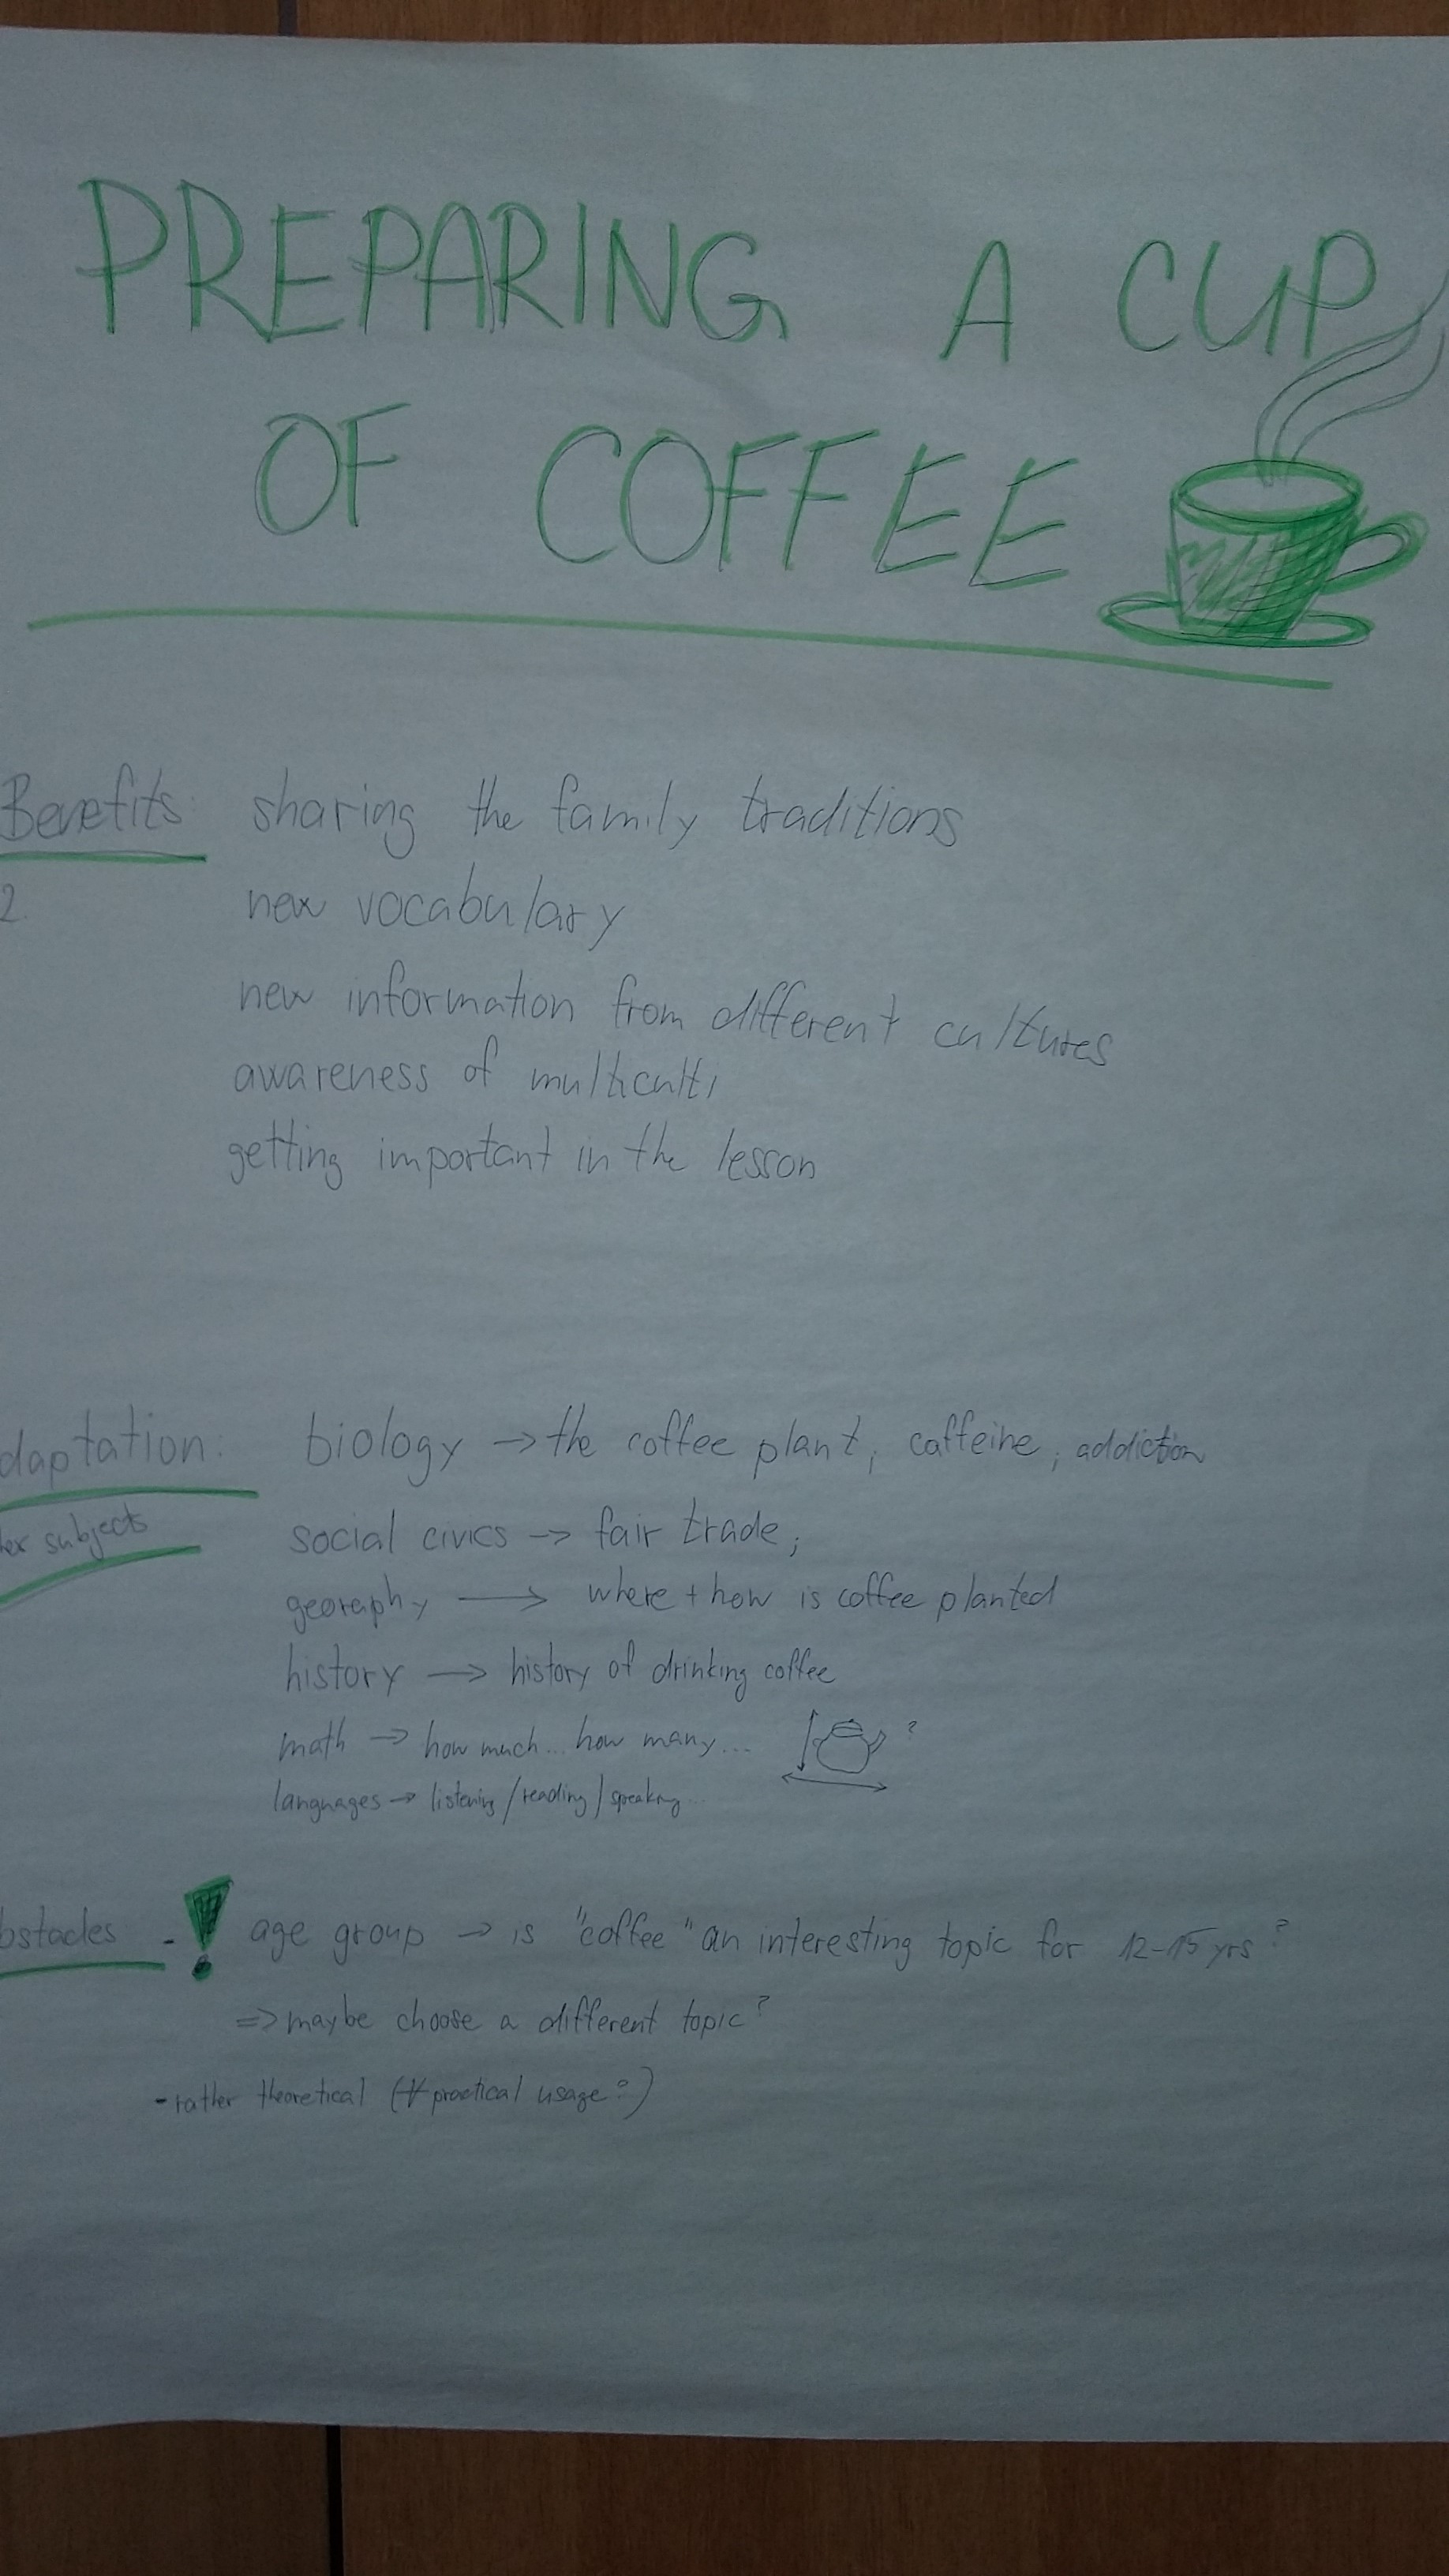 PREPARING A CUP
OF COFFEE
Benefits: sharing the family traditions
2. new vocabulary
new information from different cultures
awareness of multiculti
getting important in the lesson
daptation: biology → the coffee plant, caffeine, addiction
er subjects
social civics → fair trade;
georaphy → where + how is coffee planted
history → history of drinking coffee
math → how much... how many... ?
languages → listening/reading/speaking...
bstacles - ! age group → is "coffee" an interesting topic for 12-15 yrs?
⇒ maybe choose a different topic?
- rather theoretical (practical usage?)